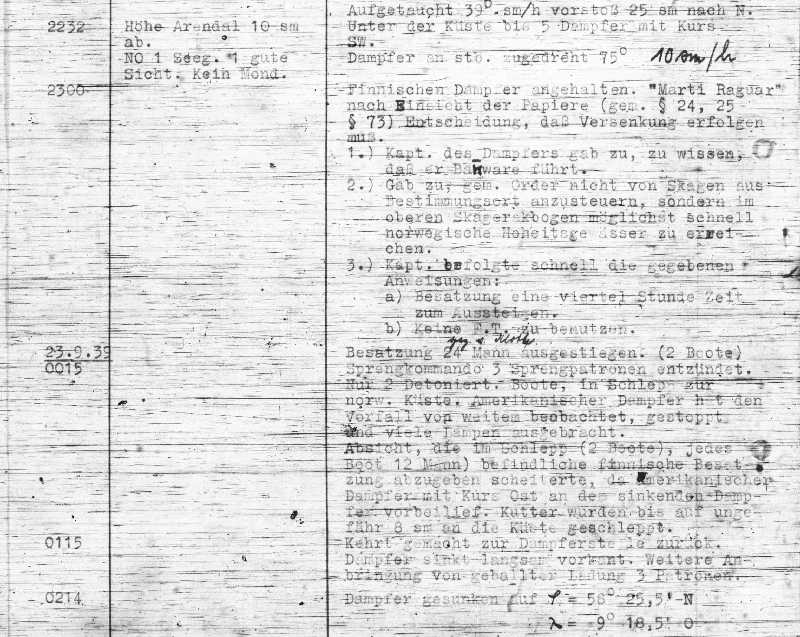 Aufgetaucht 39° sm/h vorstoß 25 sm nach N.
2232 Höhe Arendal 10 sm Unter der Küste bis 5 Dampfer mit Kurs
ab. SW.
NO 1 Seeg. 1 gute Dampfer an stb. zugedreht 75° 10 sm/h
Sicht. Kein Mond.
2300 Finnischen Dampfer angehalten. "Marti Raguar"
nach Einsicht der Papiere (gem. § 24, 25
§ 73) Entscheidung, daß Versenkung erfolgen
muß.
1.) Kapt. des Dampfers gab zu, zu wissen,
daß er Banware führt.
2.) Gab zu, gem. Order nicht von Skagen aus
Bestimmungsort anzusteuern, sondern im
oberen Skagerakbogen möglichst schnell
norwegische Hoheitsge ässer zu errei-
chen.
3.) Kapt. befolgte schnell die gegebenen
Anweisungen:
a) Besatzung eine viertel Stunde Zeit
zum Aussteigen.
b) Keine F.T. zu benutzen.
23.9.39 Besatzung 24 Mann ausgestiegen. (2 Boote)
0015 Sprengkommando 3 Sprengpatronen entzündet.
Nur 2 Detoniert. Boote, in Schlepp zur
norw. Küste. Amerikanischer Dampfer h t den
Vorfall von weitem beobachtet, gestoppt
und viele Lampen ausgebracht.
Absicht, die im Schlepp (2 Boote), jedes
Boot 12 Mann) befindliche finnische Besat-
zung abzugeben scheiterte, da amerikanischer
Dampfer mit Kurs Ost an dem sinkenden Damp-
fer vorbeilief. Kutter wurden bis auf unge-
fähr 8 sm an die Küste geschleppt.
0115 Kehrt gemacht zur Dampferste le zurück.
Dampfer sinkt langsam vorkant. Weitere An-
bringung von geballter Ladung 3 Patronen.
0214 Dampfer gesunken auf φ = 58° 25,5' N
λ = 9° 18,5' O